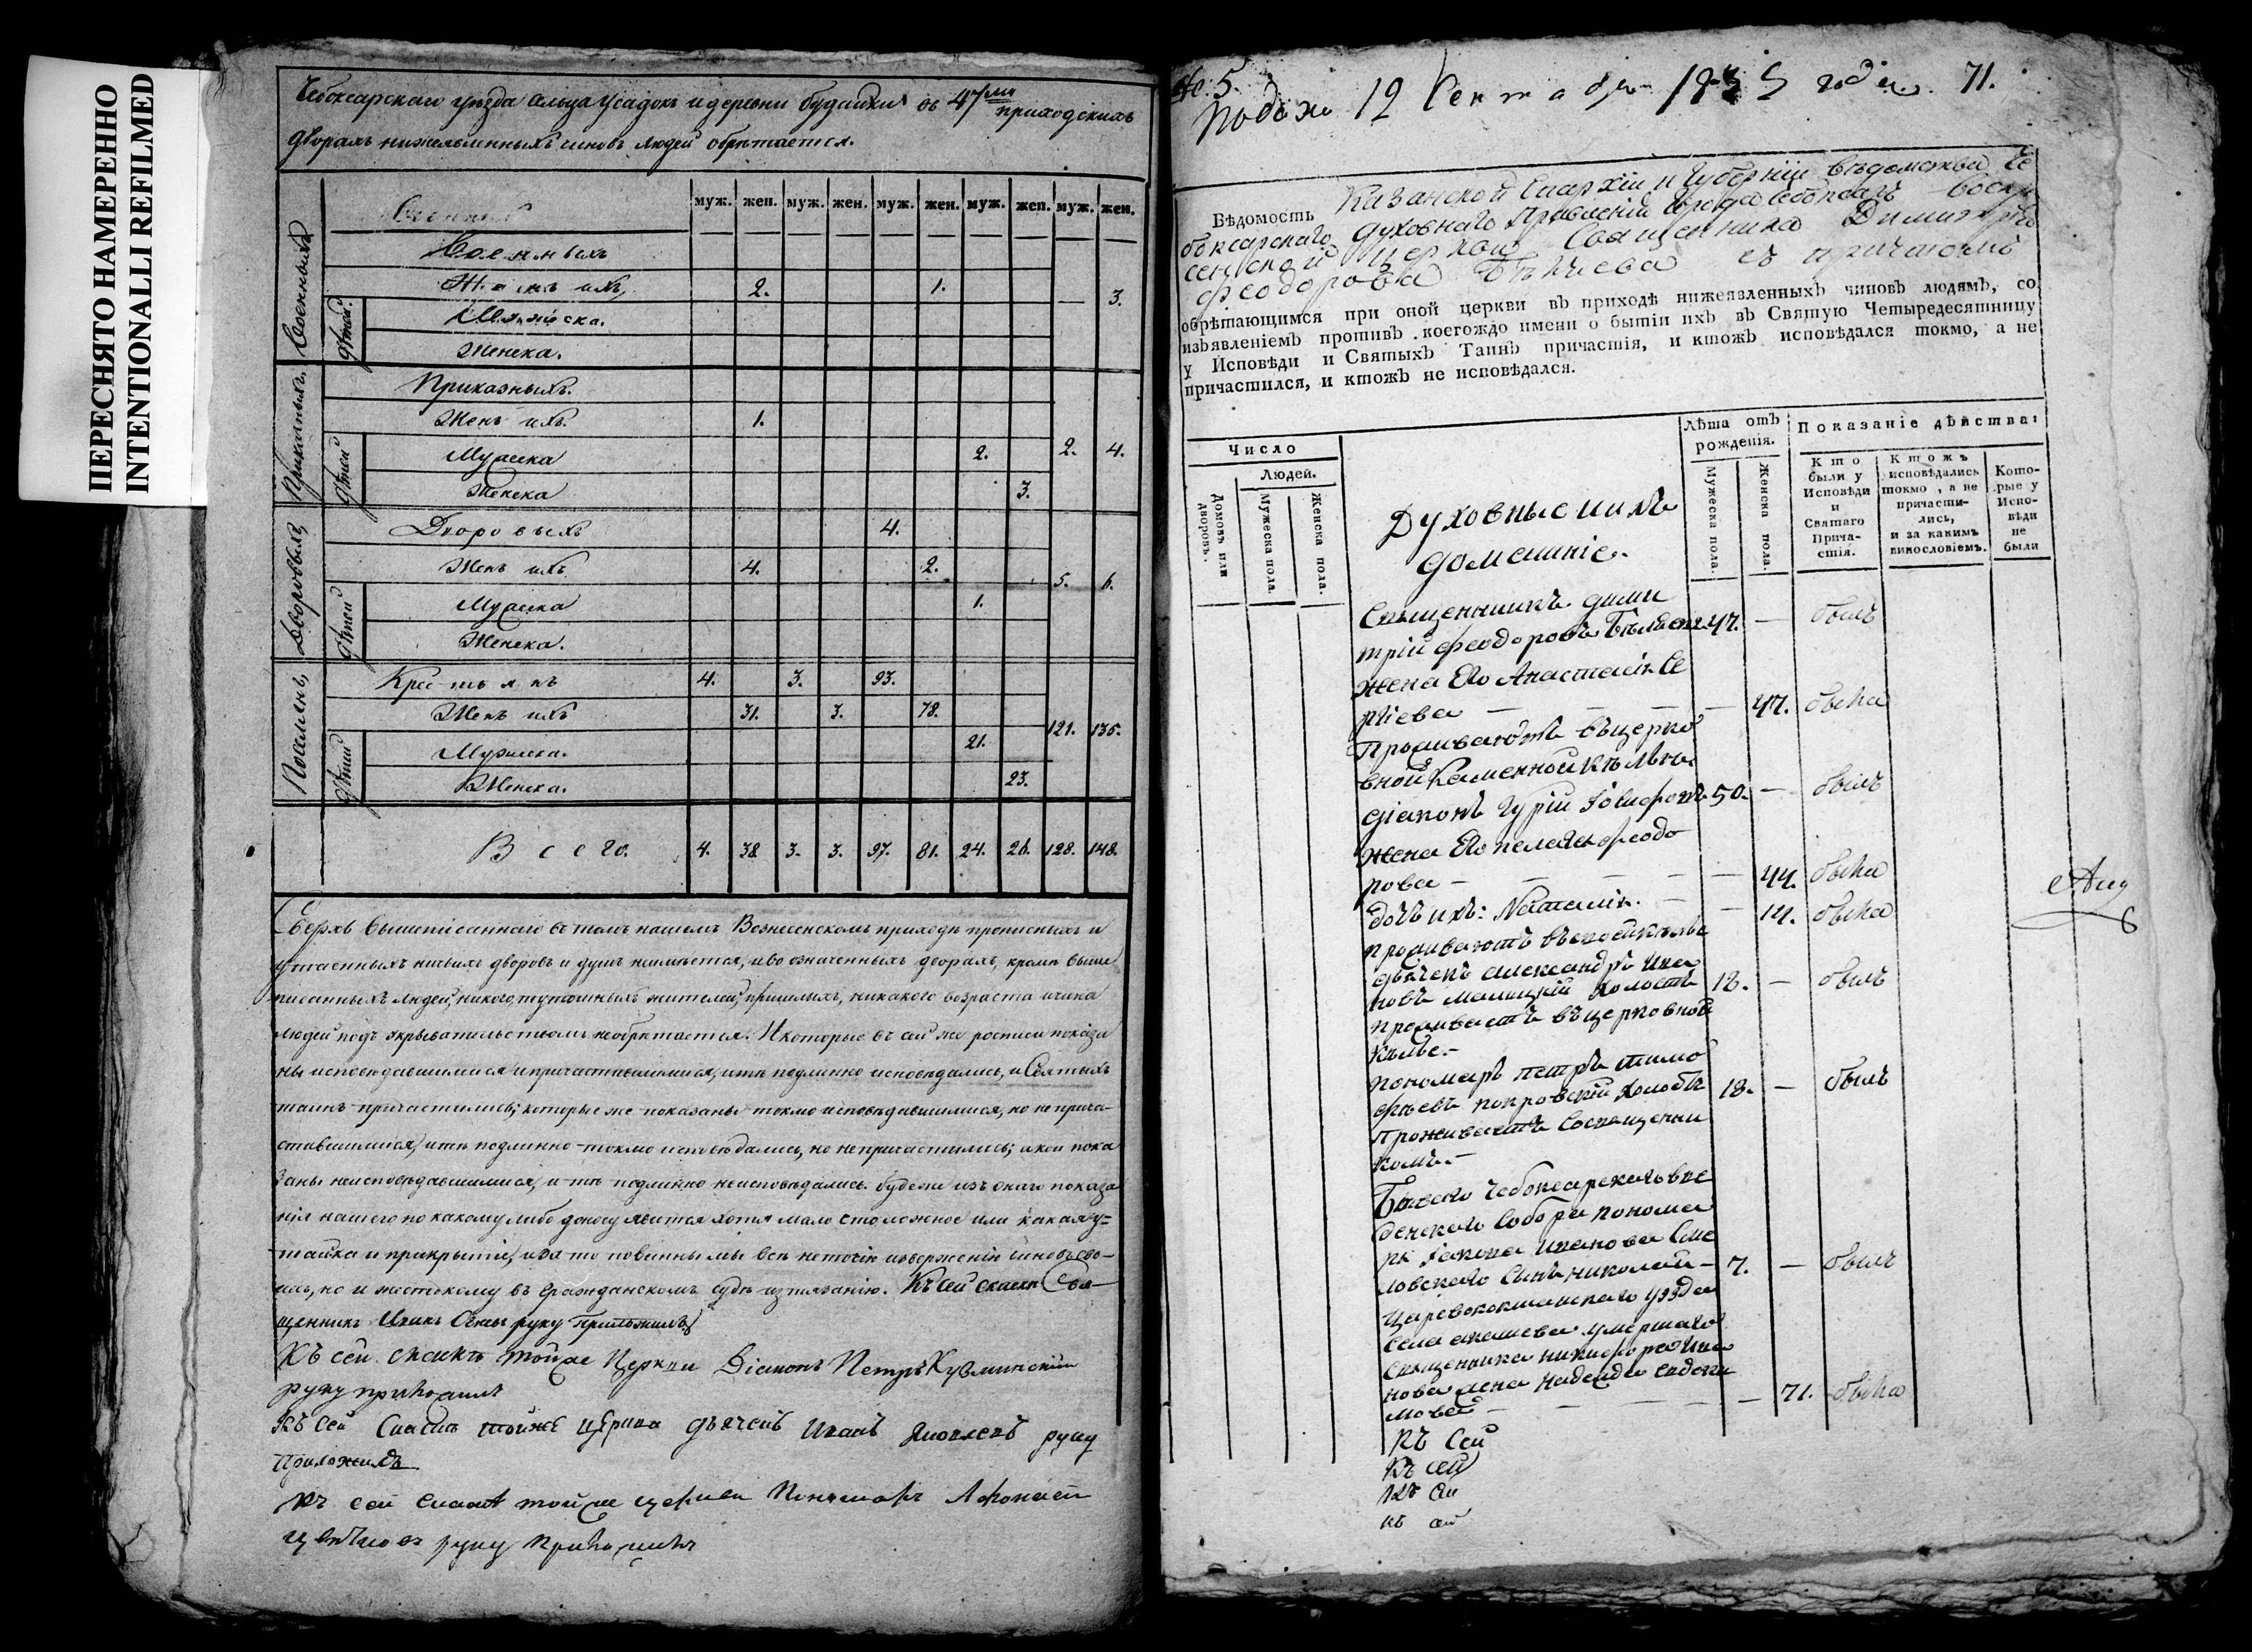 ПЕРЕСНЯТО НАМЕРЕННО
INTENTIONALLI REFILMED
Чебоксарскаго уезда сельца Усадокъ и деревни Будайки въ 47ми приходскихъ
дворахъ нижеявленныхъ чиновъ людей обрѣтается.
муж. жен. муж. жен. муж. жен. муж. жен. муж. жен.
Военныхъ
Военныхъ
Женъ ихъ 2. 1. — 3.
дѣтей
Мужеска.
Женска.
Приказныхъ.
Приказныхъ.
Женъ ихъ. 1.
2. 4.
дѣтей
Мужеска 2.
Женска 3.
Дворовыхъ
Дворовыхъ 4.
Женъ ихъ 4. 2.
5. 6.
дѣтей
Мужеска 1.
Женска.
Поселянъ
Крестьянъ 4. 3. 93.
Женъ ихъ 31. 3. 78.
121. 135.
дѣтей
Мужеска. 21.
Женска. 23.
Всего. 4. 38 3. 3. 97. 81. 24. 26. 128. 148.
Сверхъ вышеписаннаго въ томъ нашемъ Вознесенскомъ приходѣ прописныхъ и
утаенныхъ ничьихъ дворовъ и душъ неимѣется, и во означенныхъ дворахъ, кромѣ выше
писанныхъ людей, никого, тутошныхъ жителей, пришлыхъ, никакого возраста и чина
людей подъ укрывательствомъ необрѣтается. И которые въ сей же росписи показа
ны исповѣдавшимися и причастившимися, и тѣ подлинно исповѣдались, и Святыхъ
таинъ причастились; которые же показаны токмо исповѣдавшимися, но не прича-
стившимися, и тѣ подлинно токмо исповѣдались, но непричастились; и кои пока
заны неисповѣдавшимися, и тѣ подлинно неисповѣдались. Будеже изъ онаго показа
нія нашего по какому либо доносу явится хотя мало что ложное или какая у-
тайка и прикрытіе, и за то повинны мы всѣ неточію изверженію чиновъ сво-
ихъ, но и жестокому въ Гражданскомъ судѣ истязанію. Къ сей скаскѣ Свя-
щенникъ руку приложилъ
Къ сей скаскѣ тойже Церкви Діаконъ Петръ Кузминскій
руку приложилъ
Къ сей скаскѣ тойже церкви дьячекъ Иванъ Яковлевъ руку
приложилъ
Къ сей скаскѣ тойже церкви Пономарь Афонасей
руку приложилъ
№. 5. 71.
Подана 12 Сентября 1835 года.
Вѣдомость Казанской Епархіи и Губерніи вѣдомства Че
боксарскаго духовнаго Правленія города Чебоксаръ Воскре
сенской церкви Священника Димитрія
Феодорова Бѣляева съ причтомъ
обрѣтающимся при оной церкви въ приходѣ нижеявленныхъ чиновъ людямъ, со
изъявленіемъ противъ коегождо имени о бытіи ихъ въ Святую Четыредесятницу
у Исповѣди и Святыхъ Таинъ причастія, и ктожъ исповѣдался токмо, а не
причастился, и ктожъ не исповѣдался.
Число
Людей.
Домовъ или дворовъ.
Мужеска пола.
Женска пола.
Духовные и ихъ
домашніе.
Лѣта отъ
рожденія.
Мужеска пола.
Женска пола.
Показаніе дѣйства:
Кто
были у
Исповѣди
и
Святаго
Прича-
стія.
Ктожъ
исповѣдались
токмо, а не
причасти-
лись,
и за какимъ
винословіемъ.
Кото-
рые у
Испо-
вѣди
не
были
Священникъ Дими
трій Феодоровъ Бѣляевъ 47. — былъ
жена Его Анастасія Се
ргіева — — — — 47. была
Проживаютъ въ церко
вной каменной кѣльѣ.
Діаконъ Гурій 50. — былъ
жена Его Пелагея Феодо
рова — — — — 44. была
дочь ихъ: Наталія. — — 14. была
проживаютъ въ своей кѣльѣ
дьячекъ Александръ Ива
новъ холостъ 18. — былъ
проживаетъ въ церковной
кѣльѣ.—
пономарь Петръ Тимо
феевъ Покровскій холостъ 18. — былъ
Проживаетъ со священни
комъ.—
Бывшаго Чебоксарскаго Вве
денскаго Собора пономa
ря Іакова Иванова Сме
ловскаго сынъ Николай — 7. — былъ
Царевококшайскаго уѣзда
села умершаго
Священника Никифора Ива
нова жена Надежда Евдоки
мова — — — — 71. была
Къ сей
Къ сей
Къ сей
къ сей